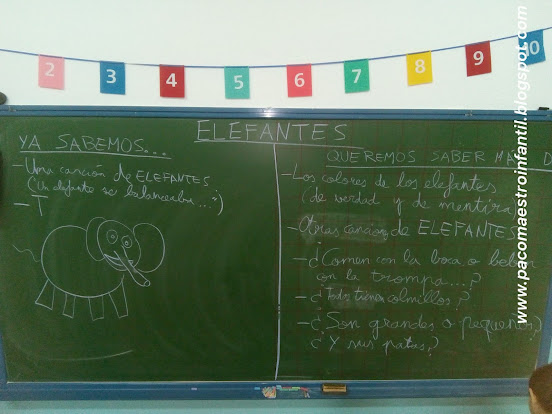 2 3 4 5 6 7 8 9 10
ELEFANTES
YA SABEMOS...
- Una canción de ELEFANTES
(Un elefante se balanceaba...)
- T
QUEREMOS SABER MÁS D
- Los colores de los elefantes
(de verdad y de mentira)
- Otras canción de ELEFANTES
- ¿Comen con la boca o beben
con la trompa...?
- ¿Todos tienen colmillos?
- ¿Son grandes o pequeños?
¿Y sus patas?
www.pacomaestroinfantil.blogspot.com